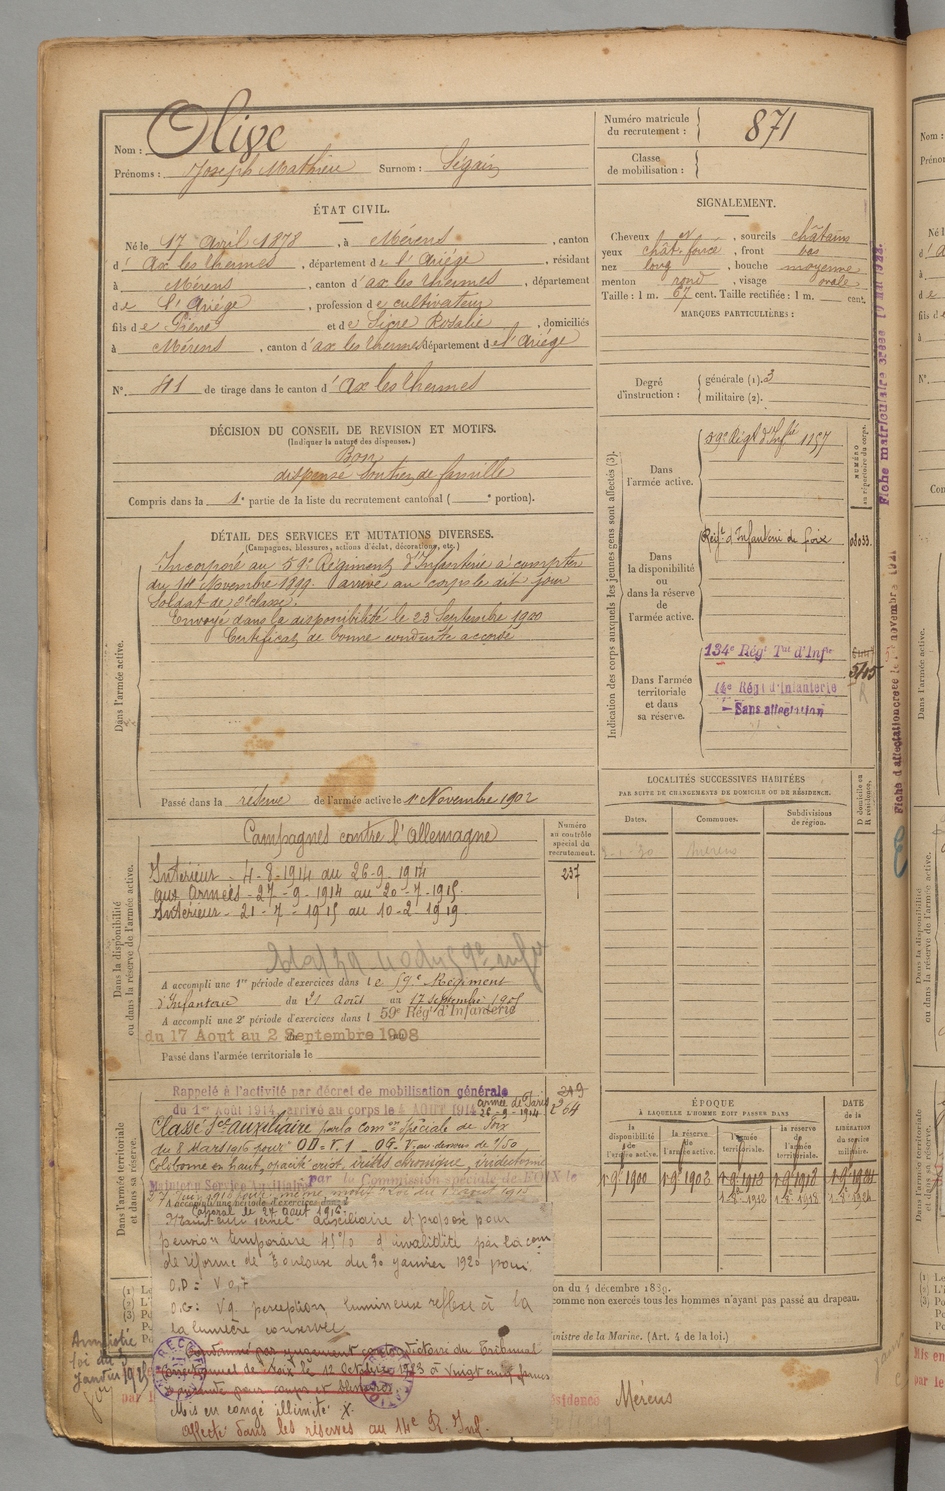 Nom : Olive
Prénoms : Joseph Mathieu Surnom : Ségais
Numéro matricule du recrutement : 871
Classe de mobilisation :
ÉTAT CIVIL.
Né le 17 avril 1878, à Mérens, canton
d' Ax les thermes, département de l'Ariége, résidant
à Mérens, canton d'ax les thermes, département
de l'Ariége, profession de cultivateur
fils de Pierre et de Sicre Rosalie, domiciliés
à Mérens, canton d'ax les thermes, département de l'Ariége
N° 41 de tirage dans le canton d'Ax les thermes
SIGNALEMENT.
Cheveux id, sourcils châtains
yeux chât. foncé, front bas
nez long, bouche moyenne
menton rond, visage ovale
Taille : 1 m. 67 cent. Taille rectifiée : 1 m. cent.
MARQUES PARTICULIÈRES :
Degré d'instruction : générale (1). 3
militaire (2).
DÉCISION DU CONSEIL DE REVISION ET MOTIFS.
(Indiquer la nature des dispenses.)
Bon
dispensé soutien de famille
Compris dans la 1e partie de la liste du recrutement cantonal ( e portion).
DÉTAIL DES SERVICES ET MUTATIONS DIVERSES.
(Campagnes, blessures, actions d'éclat, décorations, etc.)
Dans l'armée active.
Incorporé au 59e Régiment d'Infanterie à compter
du 14 Novembre 1899. arrivé au corps le dit jour
Soldat de 2e classe.
Envoyé dans la disponibilité le 23 Septembre 1900
Certificat de bonne conduite accordé
Passé dans la réserve de l'armée active le 1er Novembre 1902
Indication des corps auxquels les jeunes gens sont affectés (3).
Dans l'armée active.
59e Régt d'Infie 1157
NUMÉRO au répertoire du corps.
Dans la disponibilité ou dans la réserve de l'armée active.
Régt. d'Infanterie de foix
08033.
Dans l'armée territoriale et dans sa réserve.
134e Régt Tal d'Infie
5105
R
14e Régt d'Infanterie
- Sans affectation
Fiche matriculaire créée
Fiche d'affectation créée le novembre 1921
LOCALITÉS SUCCESSIVES HABITÉES
PAR SUITE DE CHANGEMENTS DE DOMICILE OU DE RÉSIDENCE.
Dates. Communes. Subdivisions de région. D domicile ou R résidence.
Dans la disponibilité ou dans la réserve de l'armée active.
Numéro au contrôle spécial du recrutement.
237
Campagnes contre l'allemagne
Intérieur - 4-8-1914 au 26-9-1914
aux Armées - 27-9-1914 au 20-7-1915
Intérieur - 21-7-1915 au 10-2-1919
A accompli une 1re période d'exercices dans le 59e Régiment
d'Infanterie du 21 août au 17 septembre 1905
A accompli une 2e période d'exercices dans l 59e Régt d'Infanterie
du 17 Aout au 2 Septembre 1908
Passé dans l'armée territoriale le
Dans l'armée territoriale et dans sa réserve.
Rappelé à l'activité par décret de mobilisation générale
du 1er Août 1914, arrivé au corps le 4 AOUT 1914
armée de Paris
26-9-1914
264
Classé Sce auxiliaire par la Comon spéciale de Foix
du 8 Mars 1916 pour OD = V.1 OG. V. au dessous de 1/50
Colobome en haut, opacité crist, iritis chronique, iridectomie
Maintenu Service Auxiliaire par la Commission spéciale de FOIX le
Caporal le 27 août 1916
Maintenu servce auxiliaire et proposé pour
pension temporaire 45% d'invalidité par la com
de réforme de Toulouse du 30 janvier 1920 pour
O.D = V 0,7
O.G: Vg. perception lumineuse réflexe à la
la lumière conservée
Condamné par jugement contradictoire du Tribunal
Correctionnel de Foix le 12 Octobre 1923 à Vingt cinq francs
d'amende pour coups et blessures
Mis en congé illimité X.
affecté dans les réserves au 14e R. Inf.
Amnistié
loi du 3
Janvier 1925
ÉPOQUE
À LAQUELLE L'HOMME DOIT PASSER DANS
la disponibilité de l'armée active. la réserve de l'armée active. l'armée territoriale. la réserve de l'armée territoriale.
DATE de la LIBÉRATION du service militaire.
1-9-1900 1-9-1902
on du 4 décembre 1889.
comme non exercés tous les hommes n'ayant pas passé au drapeau.
inistre de la Marine. (Art. 4 de la loi.)
ésidence Mérens
Mis en
par le